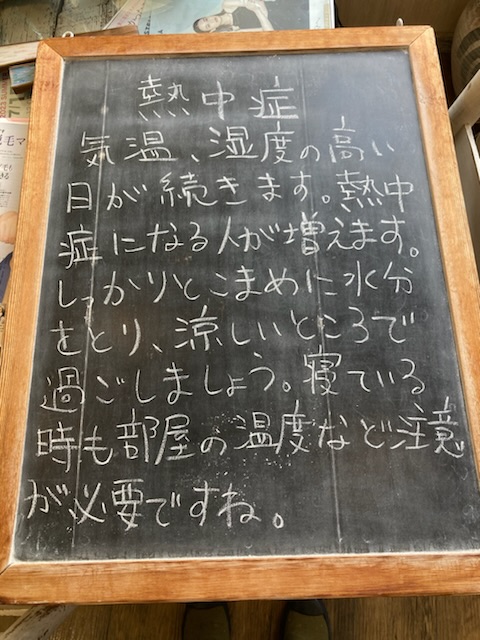 熱中症
気温、湿度の高い
日が続きます。熱中
症になる人が増えます。
しっかりとこまめに水分
をとり、涼しいところで
過ごしましょう。寝ている
時も部屋の温度など注意
が必要ですね。